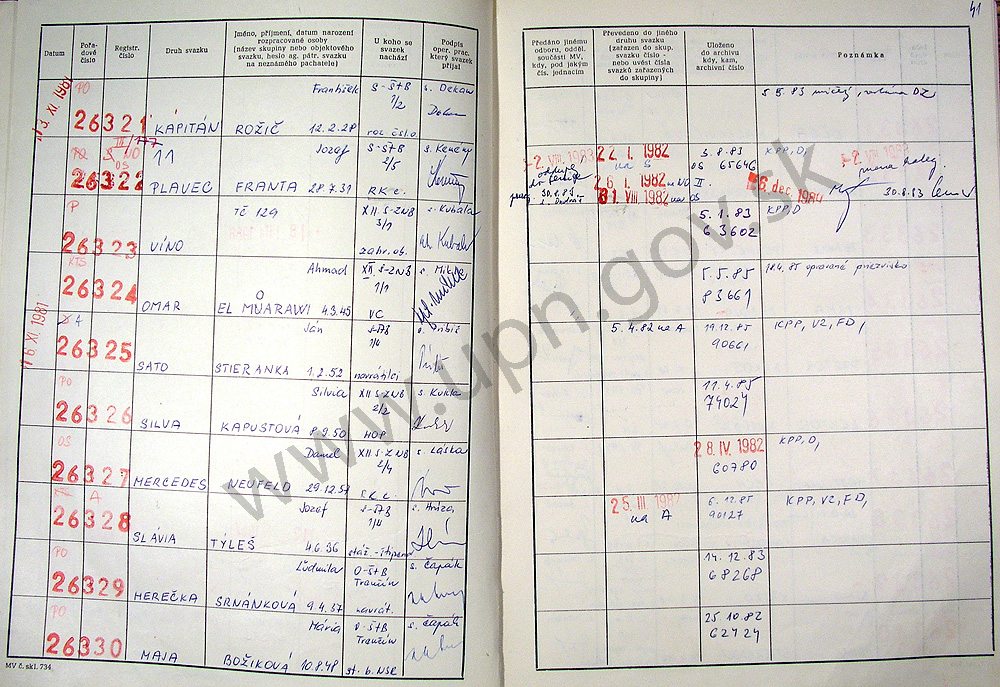 41
Datum
Pořa-
dové
číslo
Registr.
číslo
Druh svazku
Jméno, příjmení, datum narození
rozpracované osoby
(název skupiny nebo objektového
svazku, heslo ag. pátr. svazku
na neznámého pachatele)
U koho se
svazek
nachází
Podpis
oper. prac.
který svazek
přijal
Předáno jinému
odboru, odděl.
součásti MV,
kdy, pod jakým
čís. jednacím
Převedeno do jiného
druhu svazku
(zařazen do skup.
svazku číslo -
nebo uvést čísla
svazků zařazených
do skupiny)
Uloženo
do archivu
kdy, kam,
archivní číslo
Poznámka
PO
26321
KAPITÁN
František
ROŽIČ 12.2.28
S-ŠtB
1/2
s. Dekan
5.5.83
26322
OS
11
PLAVEC
Jozef
FRANTA 28.7.31
S-ŠTB
2/5
RK c.
s. Kemény
22. I. 1982
na S
26. I. 1982 na NO II.
31. VIII. 1982 na OS
3.8.83
OS 65646
KPP, D,
6. dec. 1984
30.8.83
P
26323
VÍNO
TČ 129
XII S-ZNB
3/1
zahr. ob.
s. Kubala
5.1.83
63602
KPP, D
KTS
26324
OMAR
Ahmad
EL MUARAWI 4.9.45
XII. S-ZNB
1/1
VC
5.5.85
83661
opravené priezvisko
16 XI. 1981
A
26325
SATO
Ján
STIERANKA 1.2.52
navrátilci
5.4.82 na A
19.12.85
90661
KPP, VZ, FD,
PO
26326
SILVA
Silvia
KAPUSTOVÁ 8.9.50
XII S-ZNB
2/2
HOP
s. Kukla
11.4.85
74024
OS
26327
MERCEDES
Daniel
NEUFELD 29.12.57
XII S-ZNB
2/4
s. Láska
28. IV. 1982
60780
KPP, D,
A
26328
SLÁVIA
Jozef
TÝLEŠ 4.6.36
25. III 1982
na A
6.12.85
90127
KPP, VZ, FD,
PO
26329
HEREČKA
Ľudmila
SRNÁNKOVÁ 9.4.37
O-ŠtB
Trenčín
navrát.
s. Čapák
14.12.83
68268
PO
26330
MAJA
Mária
BOŽIKOVÁ 10.8.48
O-ŠtB
Trenčín
st. b. NSR
s. Čapák
25.10.82
62424
MV č. skl. 734.
www.upn.gov.sk